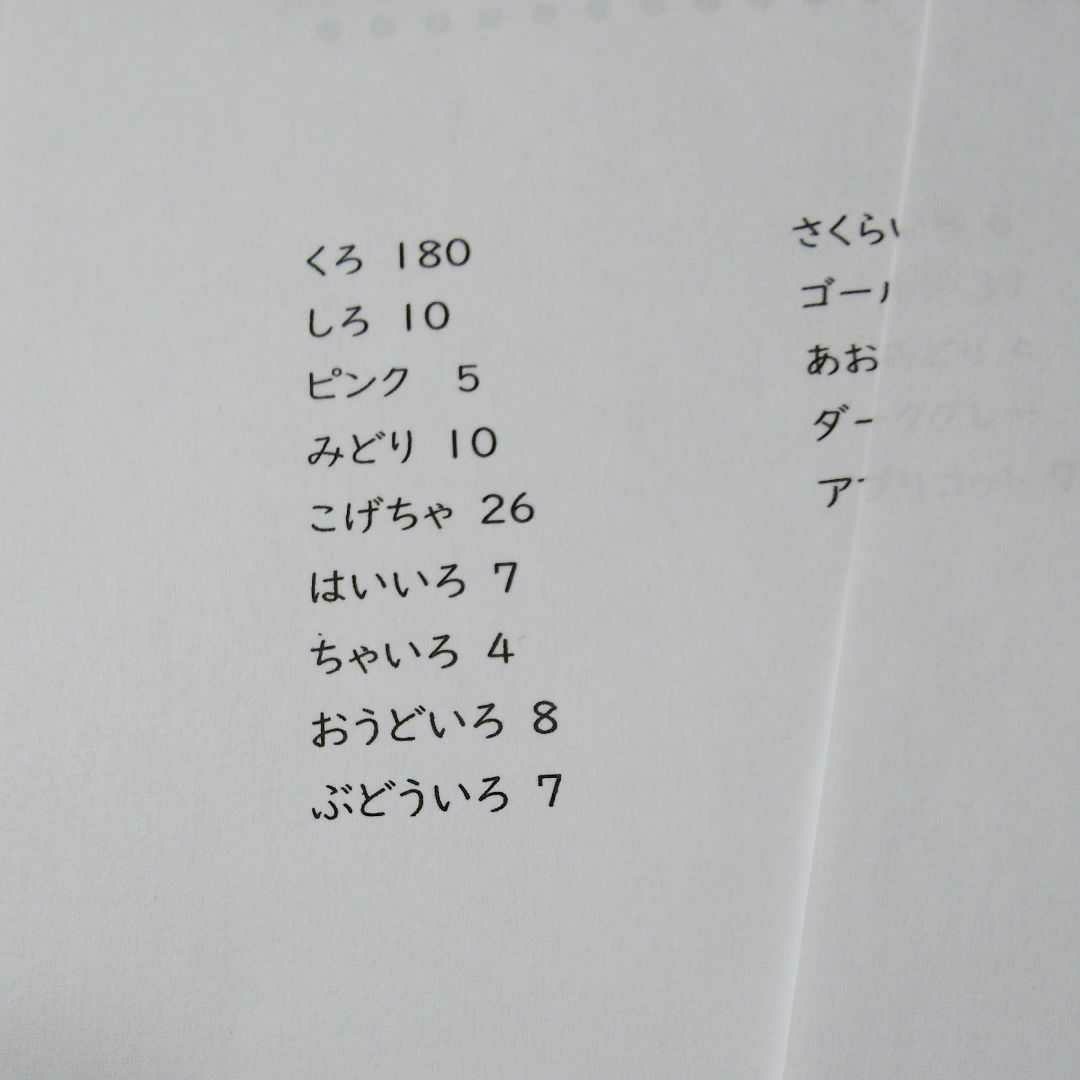 くろ 180
しろ 10
ピンク 5
みどり 10
こげちゃ 26
はいいろ 7
ちゃいろ 4
おうどいろ 8
ぶどういろ 7
さくらい
ゴール
あお
ダー
ア